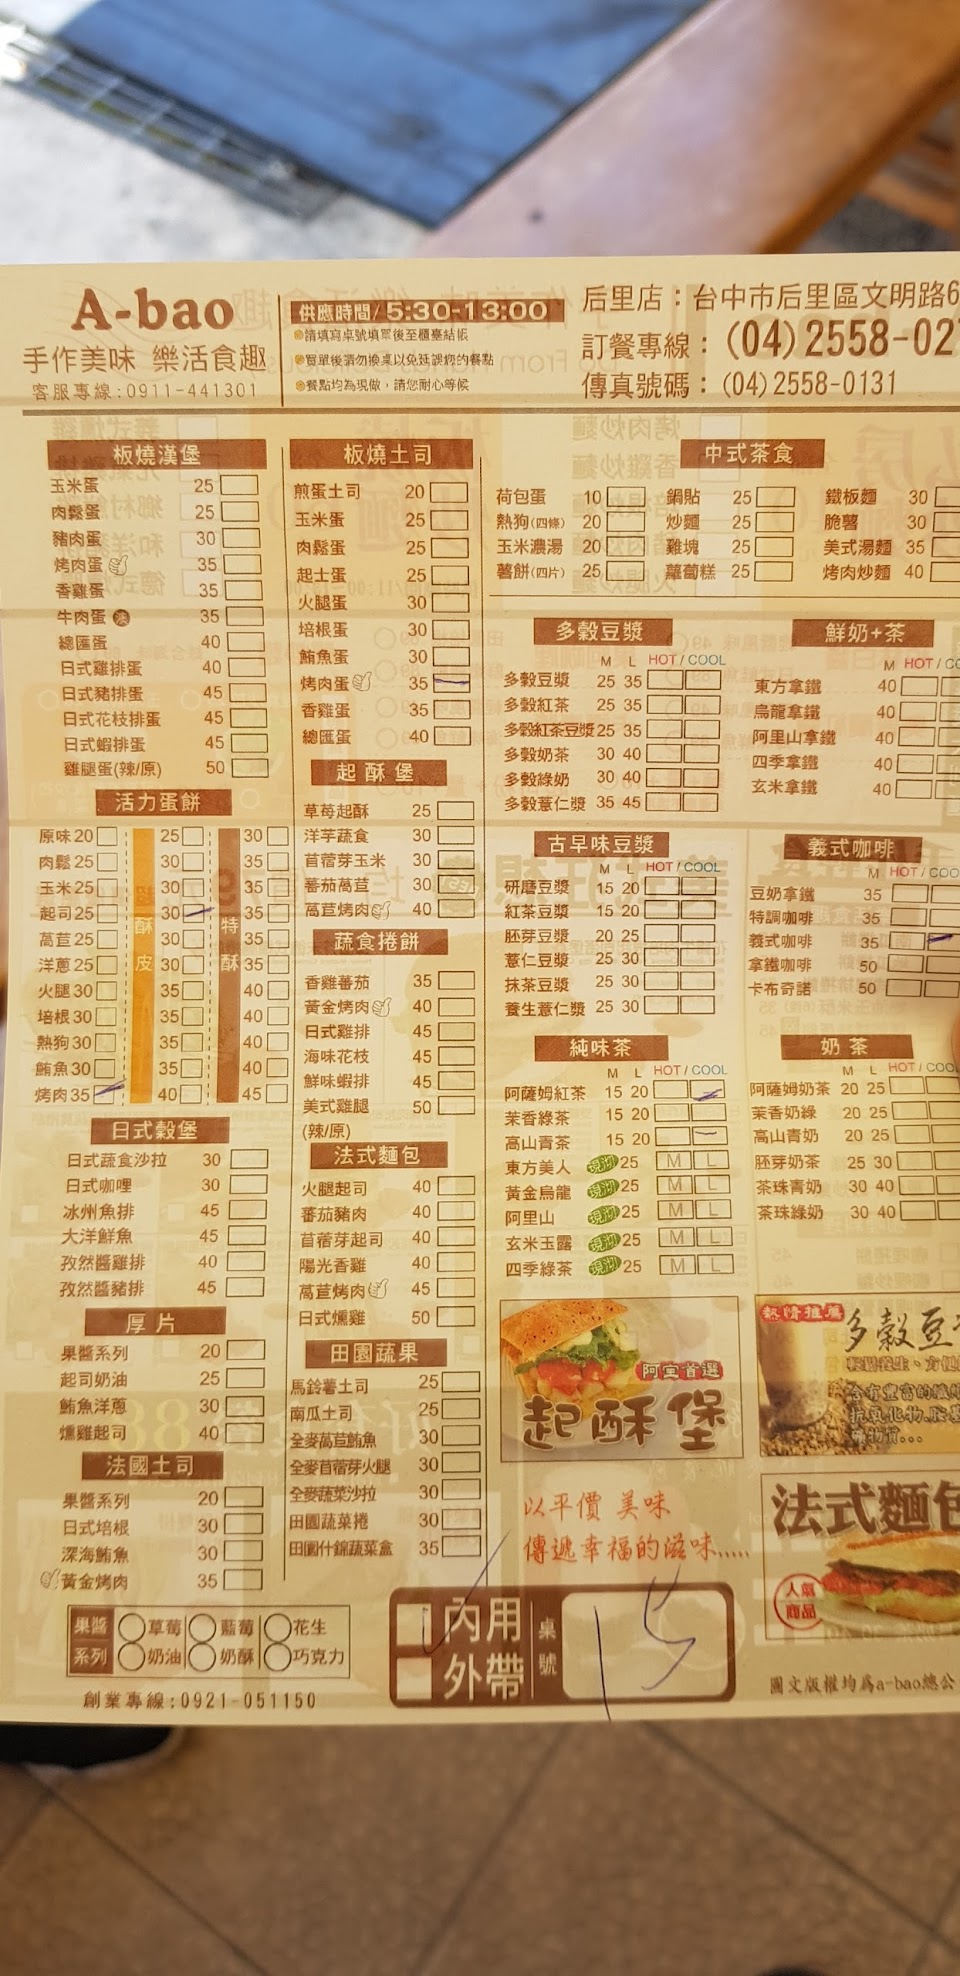 A-bao
手作美味 樂活食趣
客服專線:0911-441301
供應時間/5:30-13:00
請填寫桌號填單後至櫃臺結帳
買單後請勿換桌以免延誤您的餐點
餐點均為現做，請您耐心等候
后里店：台中市后里區文明路6
訂餐專線：(04)2558-02
傳真號碼：(04)2558-0131
板燒漢堡
玉米蛋 25
肉鬆蛋 25
豬肉蛋 30
烤肉蛋 35
香雞蛋 35
牛肉蛋 35
總匯蛋 40
日式雞排蛋 40
日式豬排蛋 45
日式花枝排蛋 45
日式蝦排蛋 45
雞腿蛋(辣/原) 50
活力蛋餅
酥皮
特酥
原味20 25 30
肉鬆25 30 35
玉米25 30 35
起司25 30 35
萵苣25 30 35
洋蔥25 30 35
火腿30 35 40
培根30 35 40
熱狗30 35 40
鮪魚30 35 40
烤肉35 40 45
日式穀堡
日式蔬食沙拉 30
日式咖哩 30
冰州魚排 45
大洋鮮魚 45
孜然醬雞排 40
孜然醬豬排 45
厚片
果醬系列 20
起司奶油 25
鮪魚洋蔥 30
燻雞起司 40
法國土司
果醬系列 20
日式培根 30
深海鮪魚 30
黃金烤肉 35
果醬系列 草莓 藍莓 花生
奶油 奶酥 巧克力
創業專線:0921-051150
板燒土司
煎蛋土司 20
玉米蛋 25
肉鬆蛋 25
起士蛋 25
火腿蛋 30
培根蛋 30
鮪魚蛋 30
烤肉蛋 35
香雞蛋 35
總匯蛋 40
起酥堡
草莓起酥 25
洋芋蔬食 30
苜蓿芽玉米 30
蕃茄萵苣 30
萵苣烤肉 40
蔬食捲餅
香雞蕃茄 35
黃金烤肉 40
日式雞排 45
海味花枝 45
鮮味蝦排 45
美式雞腿 50
(辣/原)
法式麵包
火腿起司 40
蕃茄豬肉 40
苜蓿芽起司 40
陽光香雞 40
萵苣烤肉 45
日式燻雞 50
田園蔬果
馬鈴薯土司 25
南瓜土司 25
全麥萵苣鮪魚 30
全麥苜蓿芽火腿 30
全麥蔬菜沙拉 30
田園蔬菜捲 30
田園什錦蔬菜盒 35
中式茶食
荷包蛋 10 鍋貼 25 鐵板麵 30
熱狗(四條) 20 炒麵 25 脆薯 30
玉米濃湯 20 雞塊 25 美式湯麵 35
薯餅(四片) 25 蘿蔔糕 25 烤肉炒麵 40
多穀豆漿
M L HOT/COOL
多穀豆漿 25 35
多穀紅茶 25 35
多穀紅茶豆漿 25 35
多穀奶茶 30 40
多穀綠奶 30 40
多穀薏仁漿 35 45
鮮奶+茶
M HOT/CO
東方拿鐵 40
烏龍拿鐵 40
阿里山拿鐵 40
四季拿鐵 40
玄米拿鐵 40
古早味豆漿
M L HOT/COOL
研磨豆漿 15 20
紅茶豆漿 15 20
胚芽豆漿 20 25
薏仁豆漿 25 30
抹茶豆漿 25 30
養生薏仁漿 25 30
義式咖啡
M HOT/COO
豆奶拿鐵 35
特調咖啡 35
義式咖啡 35
拿鐵咖啡 50
卡布奇諾 50
純味茶
M L HOT/COOL
阿薩姆紅茶 15 20
茉香綠茶 15 20
高山青茶 15 20
東方美人 現沏 25 M L
黃金烏龍 現沏 25 M L
阿里山 現沏 25 M L
玄米玉露 現沏 25 M L
四季綠茶 現沏 25 M L
奶茶
M L HOT/COOL
阿薩姆奶茶 20 25
茉香奶綠 20 25
高山青奶 20 25
胚芽奶茶 25 30
茶珠青奶 30 40
茶珠綠奶 30 40
阿宝首選
起酥堡
熱情推薦
多穀豆
含有豐富的纖
以平價 美味
傳遞幸福的滋味.....
法式麵包
人氣商品
內用
外帶
桌號
15
圖文版權均為a-bao總公